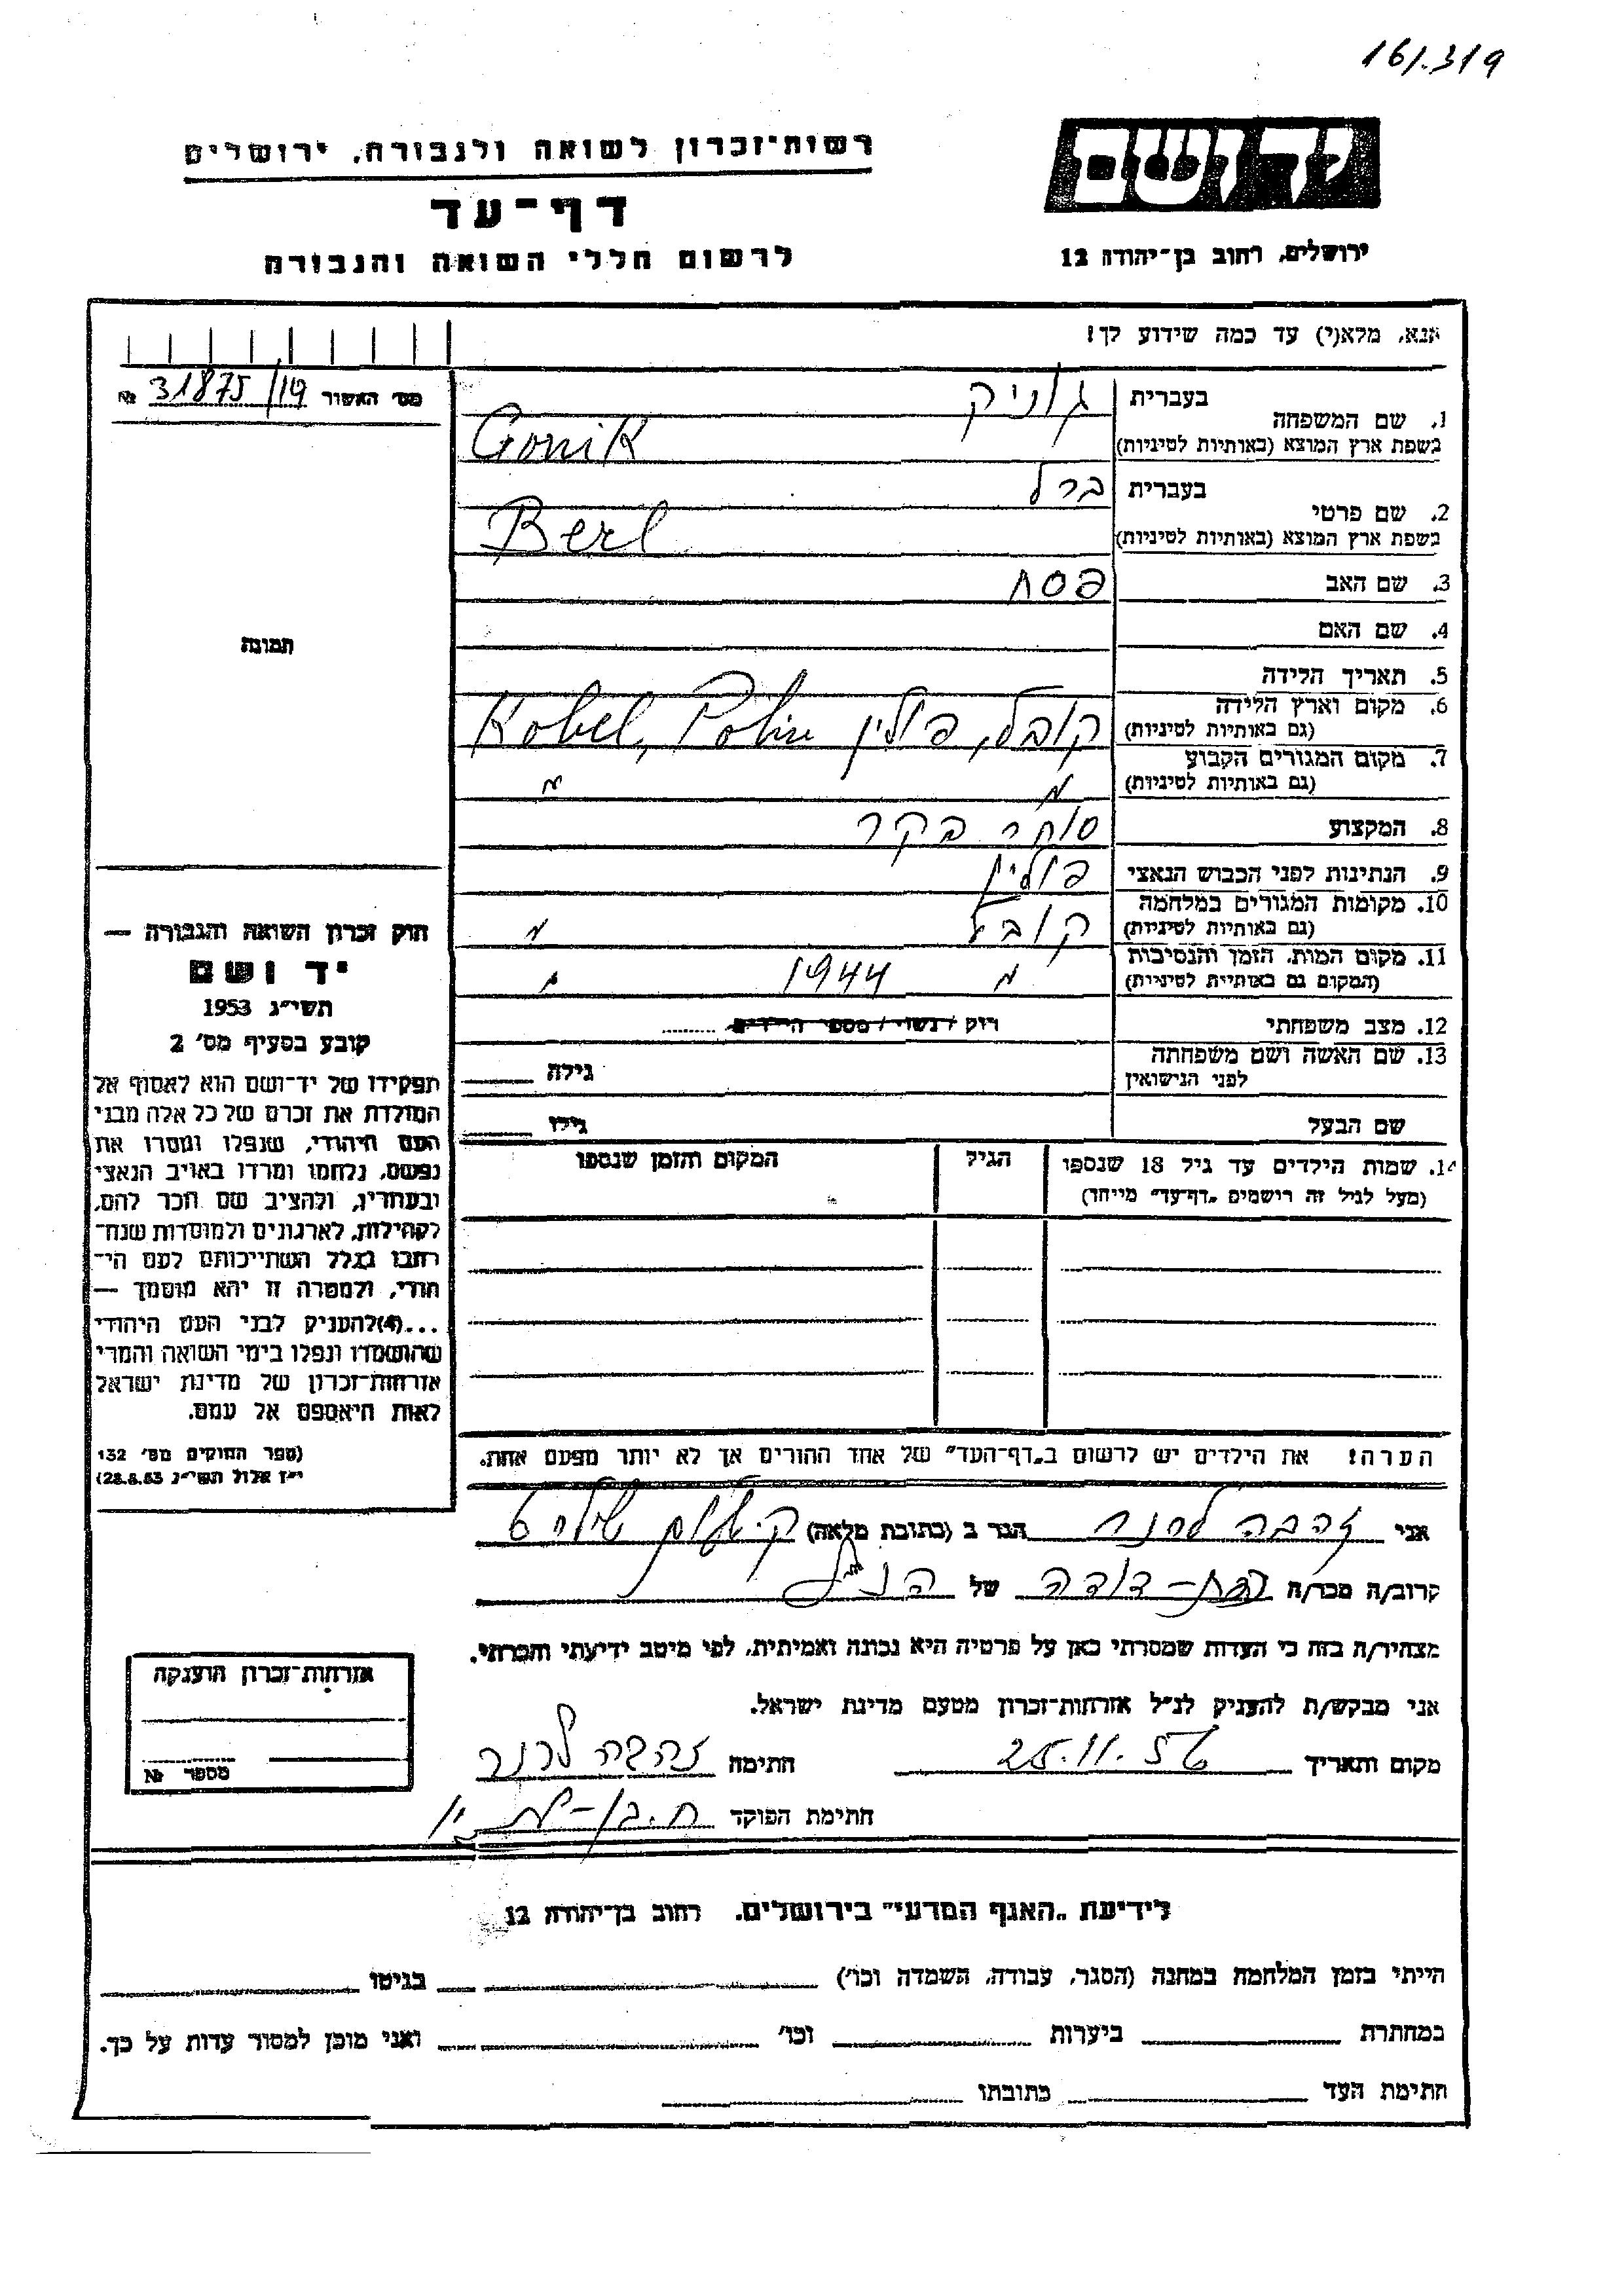 161.319
רשות־זכרון לשואה ולגבורה, ירושלים
יד ושם
דף־עד
לרשום חללי השואה והגבורה
ירושלים, רחוב בן־יהודה 12
אנא, מלא(י) עד כמה שידוע לך!
מס׳ האשור 31875/19 №
1. שם המשפחה
בעברית גוניק
בשפת ארץ המוצא (באותיות לטיניות) Gonik
2. שם פרטי
בעברית ברל
בשפת ארץ המוצא (באותיות לטיניות) Berl
3. שם האב פסח
4. שם האם
תמונה
5. תאריך הלידה
6. מקום וארץ הלידה
(גם באותיות לטיניות) קובל, פולין Kobel, Polin
7. מקום המגורים הקבוע
(גם באותיות לטיניות) " "
8. המקצוע סוחר בקר
9. הנתינות לפני הכבוש הנאצי פולין
10. מקומות המגורים במלחמה
(גם באותיות לטיניות) קובל "
11. מקום המות, הזמן והנסיבות
(המקום גם באותיות לטיניות) " 1944 "
12. מצב משפחתי רוק / נשוי / מספר הילדים ........
13. שם האשה ושם משפחתה
לפני הנישואין גילה
שם הבעל גילו
14. שמות הילדים עד גיל 18 שנספו
(מעל לגיל זה רושמים „דף־עד” מייחד)
הגיל
המקום והזמן שנספו
הערה! את הילדים יש לרשום ב„דף־העד” של אחד ההורים אך לא יותר מפעם אחת.
חוק זכרון השואה והגבורה —
יד ושם
תשי״ג 1953
קובע בסעיף מס׳ 2
תפקידו של יד־ושם הוא לאסוף אל
המולדת את זכרם של כל אלה מבני
העם היהודי, שנפלו ומסרו את
נפשם, נלחמו ומרדו באויב הנאצי
ובעוזריו, ולהציב שם וזכר להם,
לקהילות, לארגונים ולמוסדות שנח־
רבו בגלל השתייכותם לעם הי־
הודי, ולמטרה זו יהא מוסמך —
...(4) להעניק לבני העם היהודי
שהושמדו ונפלו בימי השואה והמרי
אזרחות־זכרון של מדינת ישראל
לאות היאספם אל עמם.
(ספר החוקים מס׳ 132
י״ז אלול תשי״ג 28.8.53)
אני זהבה לרנר הגר ב (כתובת מלאה) ק.
קרוב/ה מכר/ה בת-דודה של הנ״ל
מצהיר/ה בזה כי העדות שמסרתי כאן על פרטיה היא נכונה ואמיתית, לפי מיטב ידיעתי והכרתי.
אני מבקש/ת להעניק לנ״ל אזרחות־זכרון מטעם מדינת ישראל.
מקום ותאריך 25.11.56 חתימה זהבה לרנר
חתימת הפוקד
אזרחות־זכרון הוענקה
מספר №
לידיעת „האגף המדעי” בירושלים, רחוב בן־יהודה 12
הייתי בזמן המלחמה במחנה (הסגר, עבודה, השמדה וכו׳) בגיטו
במחתרת ביערות וכו׳ ואני מוכן למסור עדות על כך.
חתימת העד כתובתו